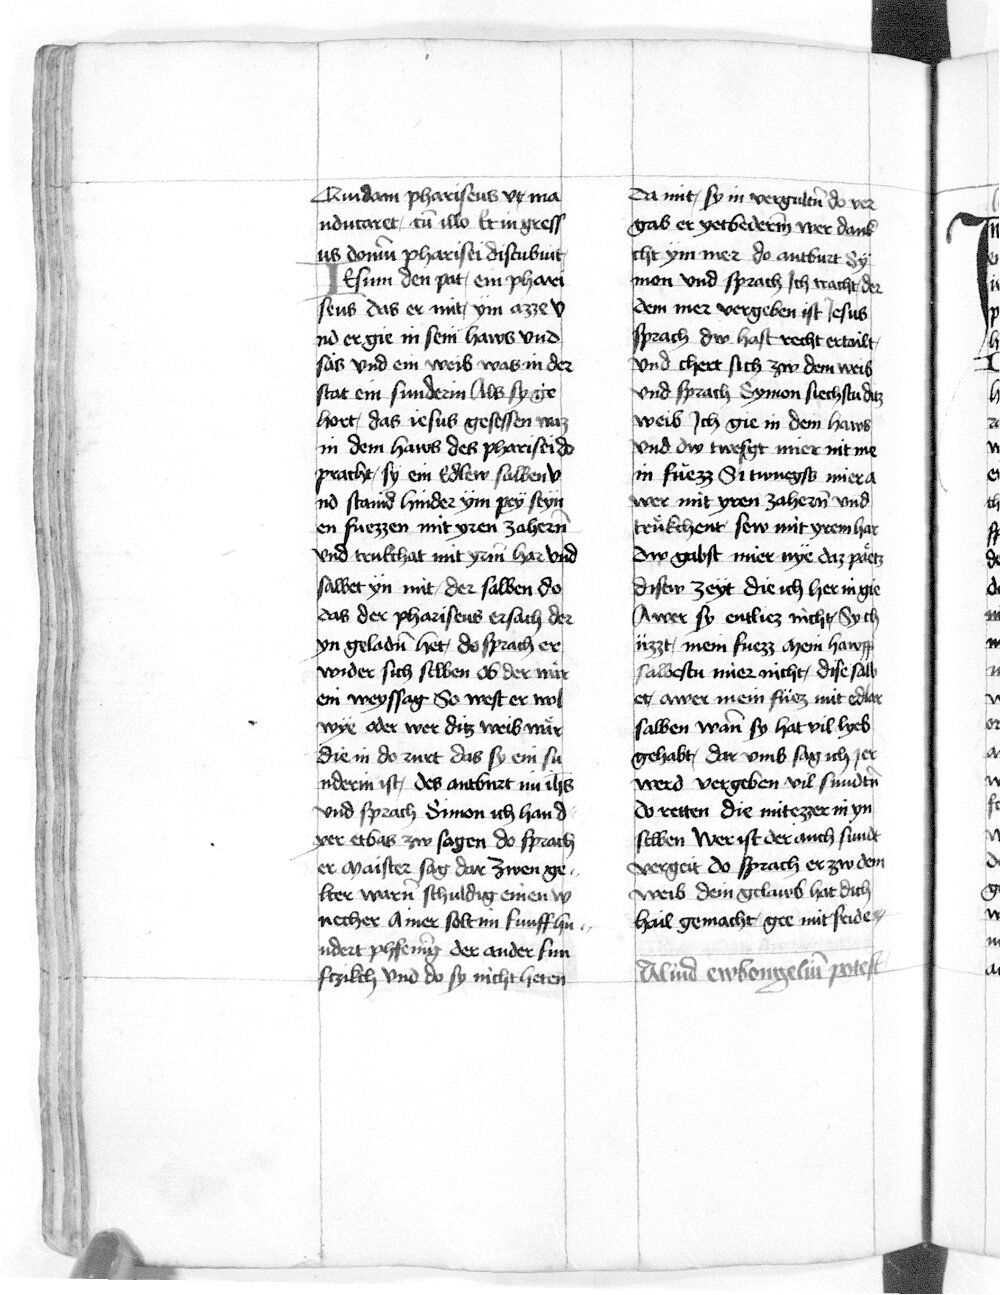 Quidam phariseus vt ma
nducaret cū illo Et in gress
us domū pharisei discubuit
IEsum den pat ein phari
seus das er mit ym azze v
nd er gie in sein haws vnd
sas vnd ein weib was in der
stat ein sunderin Als sy ge
hort das iesus gesessen waz
in dem haws des pharisei do
pracht sy ein Edlew salben v
nd stannd hinder ym pey seyn
en fuezzen mit yren zahern̄
vnd trukchat mit yrm̄ har vnd
salbet yn mit der salben do
das der phariseus ersach der
yn geladn̄ het do sprach er
wider sich selben ob der wär
ein weyssag So west er wol
wye oder wer ditz weib wär
die in do rurt das sy ein su
nderin ist des antburt im ihs
vnd sprach Simon ich han d
yer etbas zw sagen do sprach
er Maister sag dar Zwen ge
lter warn̄ schuldig einen w
uecher Ainer solt im funff hu
ndert phfenīg der ander fun
ftzikch vnd do sy nicht heten
Da mit sy in vergultn̄ do ver
gab er yetbederm̄ wer dank
cht ym mer do antburt Sy
mon vnd sprach Ich tracht der
dem mer vergeben ist Jesus
sprach dw hast recht ertailt
vnd chert sich zw dem weib
vnd sprach Symon siechstu ditz
weib Ich gie in dem haws
vnd dw twesgt mier nit me
in fuezz Si twuegts mier a
wer mit yren zahern̄ vnd
trukchent sew mit yrem har
Dw gabst mier nye daz paetz
disew zeyt die ich her in gie
Awer sy entliez nicht Sy ch
üzzt mein fuezz Mein hawpp
salbestu mier nicht dise salb
et awer mein füez mit edler
salben wan̄ sy hat vil lyeb
gehabt dar vmb sag ich jer
werd vergeben vil sundtn̄
do retten die mitezzer in yn
selben Wer ist der auch sundt
vergeit do sprach er zw dem
weib dein gelawb hat dich
hail gemacht gee mit fride
Aliud ewbongeliū potest